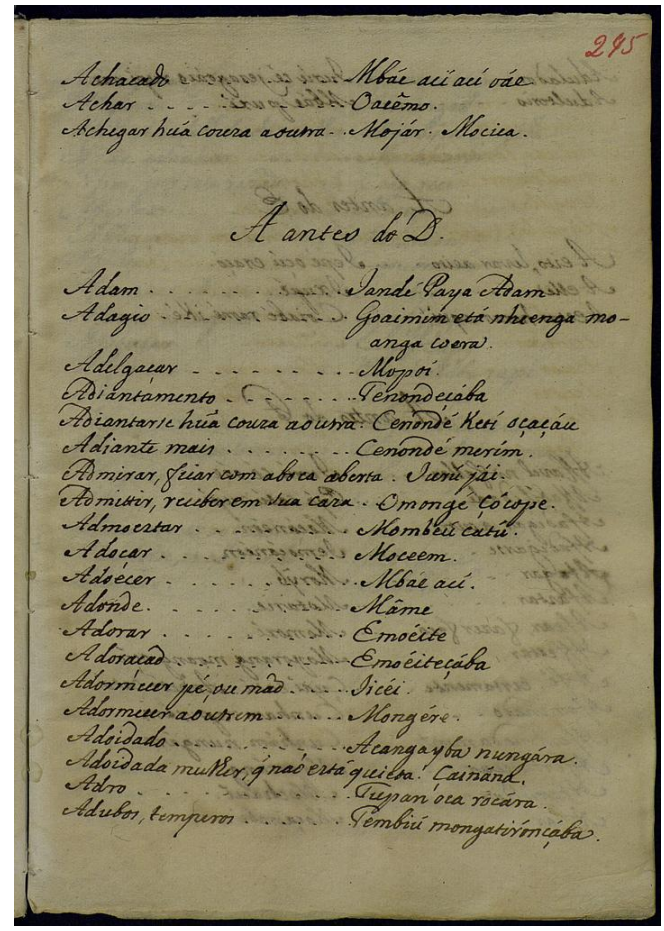 295
Achacado Mbáe aciï ací váe
Achar . . . . . . . Oacẽmo.
Achegar huã couza aoutra. . Mojár. Mocica.
A antes do D.
Adam . . . . . . . . . Jandé Paya Adam
Adagio Goaimim etá nheenga mo-
anga coera.
Adelgaçar - - - - - - - - Mopoí.
Adiantamento . - - - - - . Tenondeçába
Adiantarse huã couza aoutra. Cenondé Ketí oçaçáu
Adiante mais . . . . . . . Cenondé merím.
Admirar, ficar com aboca aberta. Jurú jái.
Admittir, receber em sua caza. Omongé çócope.
Admoeztar . . . . . . . Mombeú catû.
Adoçar . . . . . . . . Moceem.
Adoécer . . . . . . . Mbae ací.
Adonde. . . . . . . . Mâme
Adorar . . . . . . . Emoéite
Adoraçaõ Emoéiteçába
Adormecer pé, ou maõ. . . Jicéi.
Adormecer aoutrem . . . Mongére.
Adoidado Acangayba nungára.
Adoidada mulher, q̃ naõ está quieta. Cainána.
Adro . . . . . . . . . Tupan óca rocára.
Adubos, temperos . . . . . Tembiú mongatirónçába.